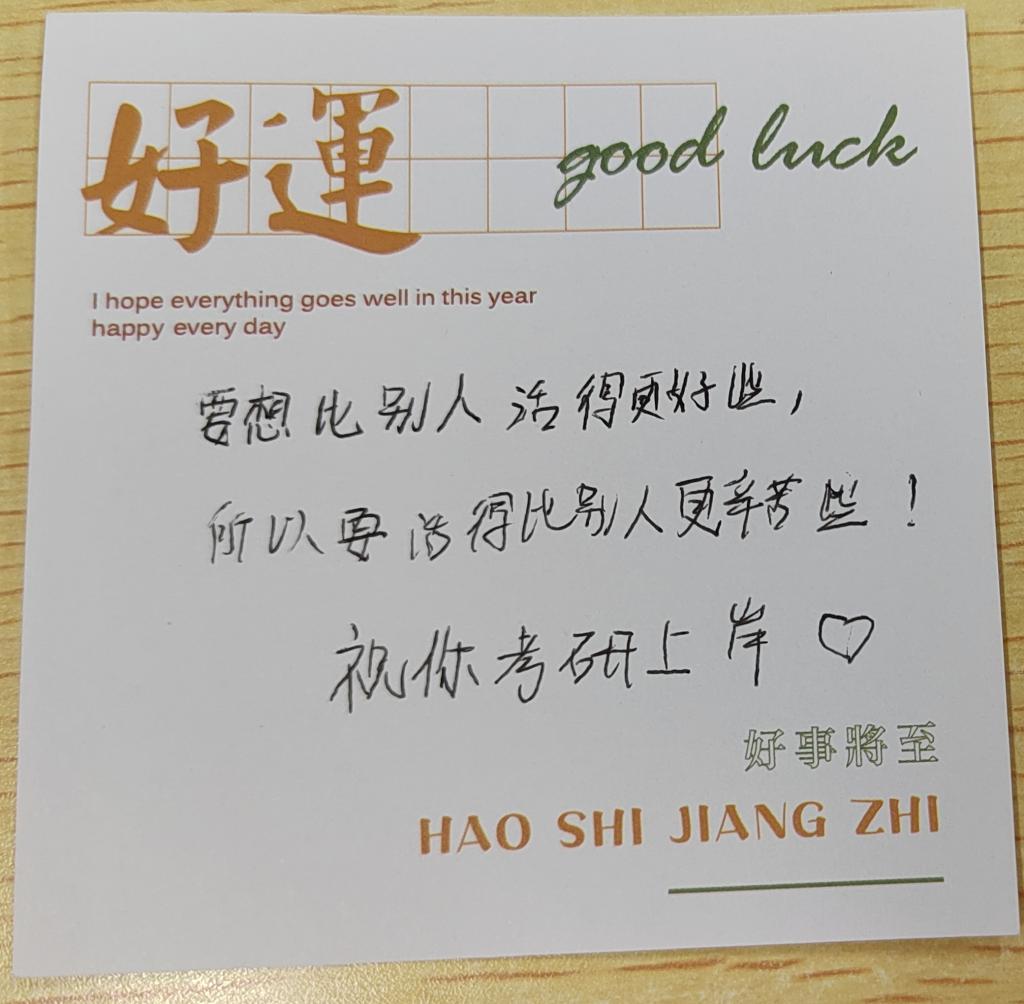 好運
good luck
I hope everything goes well in this year
happy every day
要想比别人活得更好些，
所以要活得比别人更辛苦些！
祝你考研上岸♡
好事將至
HAO SHI JIANG ZHI